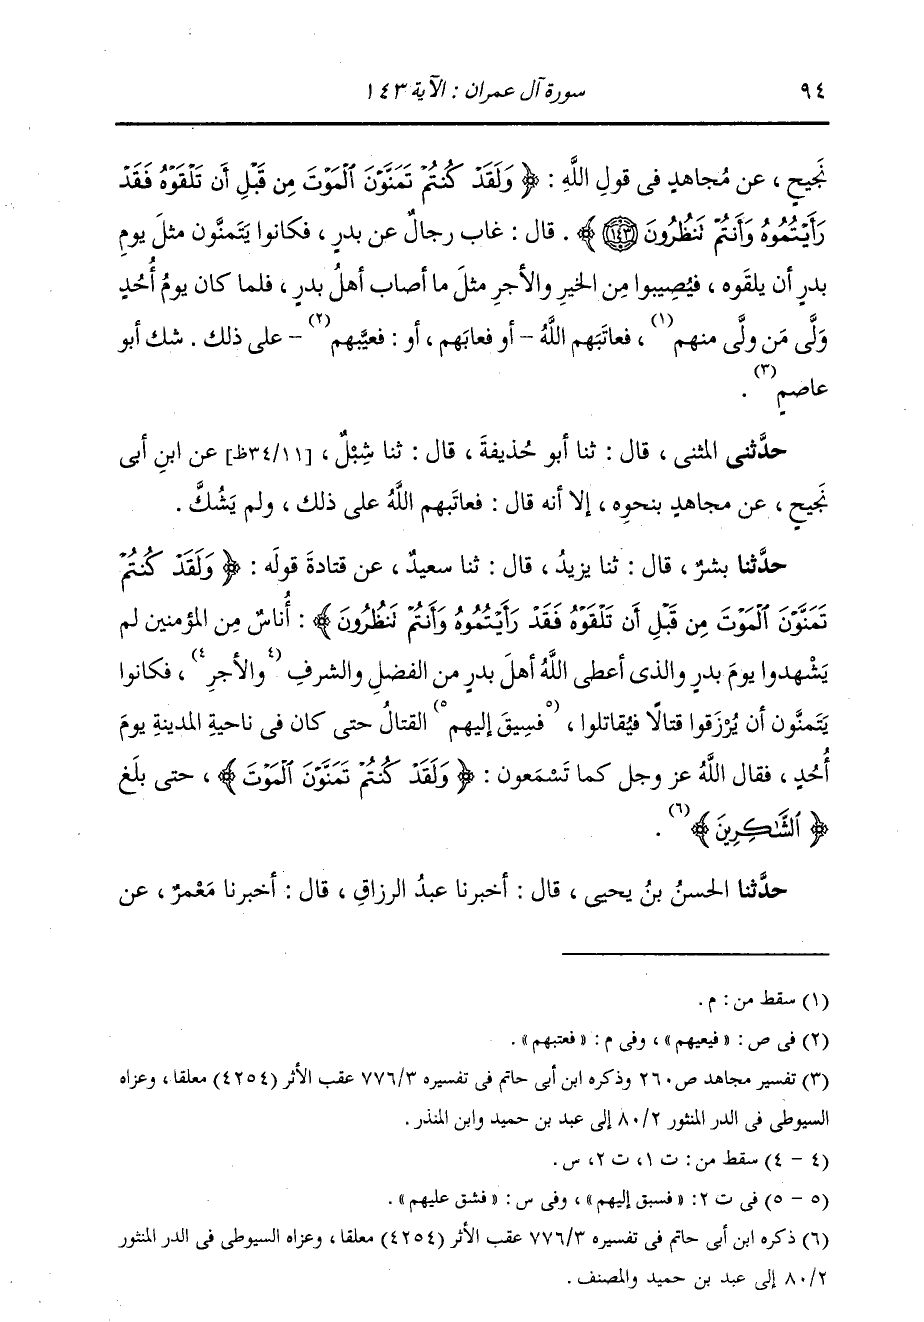 ٩٤ سورة آل عمران : الآية ١٤٣
نَجيحٍ ، عن مُجاهدٍ فى قولِ اللَّهِ : ﴿ وَلَقَدْ كُنتُمْ تَمَنَّوْنَ ٱلْمَوْتَ مِن قَبْلِ أَن تَلْقَوْهُ فَقَدْ
رَأَيْتُمُوهُ وَأَنتُمْ نَنظُرُونَ ﴿١٤٣﴾ ﴾ . قال : غاب رجالٌ عن بدرٍ ، فكانوا يَتَمنَّون مثلَ يومِ
بدرٍ أن يلقَوه ، فيُصِيبوا مِن الخيرِ والأجرِ مثلَ ما أصاب أهلُ بدرٍ ، فلما كان يومُ أُحُدٍ
وَلَّى مَن ولَّى منهم(١) ، فعاتَبَهم اللَّهُ – أو فعابَهم ، أو : فعيَّبهم(٢) – على ذلك . شك أبو
عاصمٍ(٣) .
حدَّثنى المثنى ، قال : ثنا أبو حُذيفةَ ، قال : ثنا شِبْلٌ ، [٣٤/١١ظ] عن ابنِ أبى
نَجيحٍ ، عن مجاهدٍ بنحوِه ، إلا أنه قال : فعاتَبهم اللَّهُ على ذلك ، ولم يَشُكَّ .
حدَّثنا بشرٌ ، قال : ثنا يزيدُ ، قال : ثنا سعيدٌ ، عن قتادةَ قولَه : ﴿ وَلَقَدْ كُنتُمْ
تَمَنَّوْنَ ٱلْمَوْتَ مِن قَبْلِ أَن تَلْقَوْهُ فَقَدْ رَأَيْتُمُوهُ وَأَنتُمْ نَنظُرُونَ ﴾ : أُناسٌ مِن المؤمنين لم
يَشْهدوا يومَ بدرٍ والذى أعطى اللَّهُ أهلَ بدرٍ من الفضلِ والشرفِ (٤والأجرِ٤) ، فكانوا
يَتَمنَّون أن يُرْزَقوا قتالًا فيُقاتلوا ، (٥فسِيقَ إليهم٥) القتالُ حتى كان فى ناحيةِ المدينةِ يومَ
أُحُدٍ ، فقال اللَّهُ عز وجل كما تَسْمَعون : ﴿ وَلَقَدْ كُنتُمْ تَمَنَّوْنَ ٱلْمَوْتَ ﴾ ، حتى بلَغ
﴿ ٱلشَّٰكِرِينَ ﴾(٦) .
حدَّثنا الحسنُ بنُ يحيى ، قال : أخبرنا عبدُ الرزاقِ ، قال : أخبرنا مَعْمرٌ ، عن
(١) سقط من : م .
(٢) فى ص : « فيعيهم » ، وفى م : « فعتبهم » .
(٣) تفسير مجاهد ص ٢٦٠ وذكره ابن أبى حاتم فى تفسيره ٧٧٦/٣ عقب الأثر (٤٢٥٤) معلقا ، وعزاه
السيوطى فى الدر المنثور ٨٠/٢ إلى عبد بن حميد وابن المنذر .
(٤ – ٤) سقط من : ت ١، ت ٢، س .
(٥ – ٥) فى ت ٢: « فسبق إليهم » ، وفى س : « فشق عليهم » .
(٦) ذكره ابن أبى حاتم فى تفسيره ٧٧٦/٣ عقب الأثر (٤٢٥٤) معلقا ، وعزاه السيوطى فى الدر المنثور
٨٠/٢ إلى عبد بن حميد والمصنف .